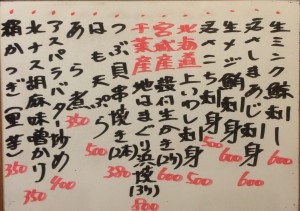 生ミンク鯨刺し 600
活しまあじ刺身 600
生メジ鮪刺身 600
活さこち刺身 500
北海道産 上いわし刺身 500
宮城産 殻付生かき(2ケ) 600
千葉産 地はまぐり浜焼(3ケ) 800
つぶ貝串焼き(2本) 380
あら煮 500
あらぶ 350
アスパラバター炒め 400
水ナス胡麻味噌かけ 350
絹かつぎ(里芋) 350